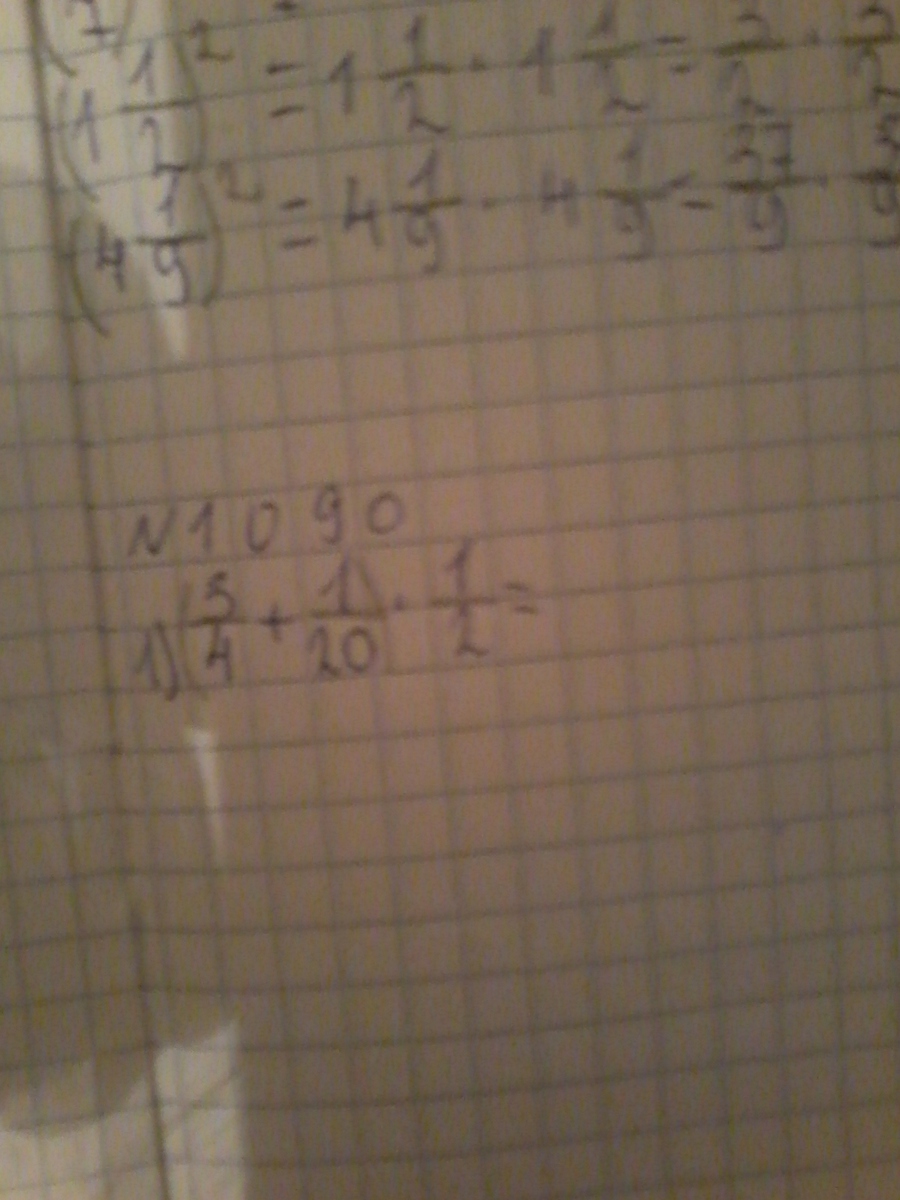 (1 1/2)² = 1 1/2 · 1 1/2 = 3/2 · 3/2
(4 1/9)² = 4 1/9 · 4 1/9 = 37/9 ·
N 1090
1) (3/4 + 1/20) · 1/2 =